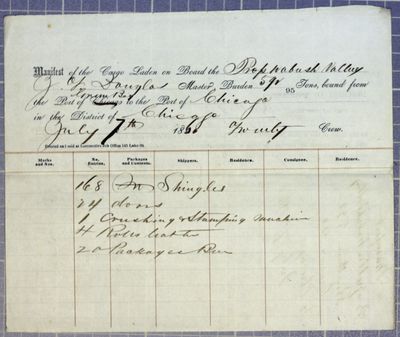 Manifest of the Cargo Laden on Board the Prop Wabash Valley
J. Douglas Master, Burden 592 95 Tons, bound from
the Port of Chicago to the Port of Chicago
in the District of Chicago
July 7th 186 Twenty Crew.
Printed and sold at Commercial Job Office 165 Lake St.
Marks and Nos. No. Entries. Packages and Contents. Shippers. Residence. Consignee. Residence.
168 M Shingles
24 doors
1 Crushing & Stamping machine
4 Rolls leather
20 Packages